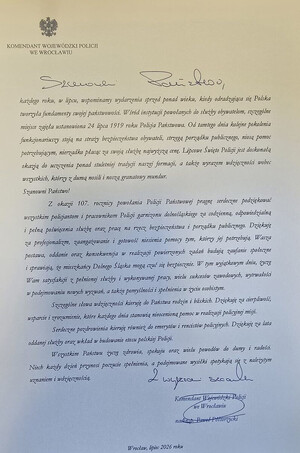 KOMENDANT WOJEWÓDZKI POLICJI
WE WROCŁAWIU
Szanowni Państwo!
każdego roku, w lipcu, wspominamy wydarzenia sprzed ponad wieku, kiedy odradzająca się Polska
tworzyła fundamenty swojej państwowości. Wśród instytucji powołanych do służby obywatelom, szczególne
miejsce zajęła ustanowiona 24 lipca 1919 roku Policja Państwowa. Od tamtego dnia kolejne pokolenia
funkcjonariuszy stoją na straży bezpieczeństwa obywateli, strzegą porządku publicznego, niosą pomoc
potrzebującym, nierzadko płacąc za swoją służbę najwyższą cenę. Lipcowe Święto Policji jest doskonałą
okazją do uczczenia ponad stuletniej tradycji naszej formacji, a także wyrazem wdzięczności wobec
wszystkich, którzy z dumą nosili i noszą granatowy mundur.
Szanowni Państwo!
Z okazji 107. rocznicy powołania Policji Państwowej pragnę serdecznie podziękować
wszystkim policjantom i pracownikom Policji garnizonu dolnośląskiego za codzienną, odpowiedzialną
i pełną poświęcenia służbę oraz pracę na rzecz bezpieczeństwa i porządku publicznego. Dziękuję
za profesjonalizm, zaangażowanie i gotowość niesienia pomocy tym, którzy jej potrzebują. Wasza
postawa, oddanie oraz konsekwencja w realizacji powierzonych zadań budują zaufanie społeczne
i sprawiają, że mieszkańcy Dolnego Śląska mogą czuć się bezpiecznie. W tym wyjątkowym dniu, życzę
Wam satysfakcji z pełnionej służby i wykonywanej pracy, wielu sukcesów zawodowych, wytrwałości
w podejmowaniu nowych wyzwań, a także pomyślności i spełnienia w życiu osobistym.
Szczególne słowa wdzięczności kieruję do Państwa rodzin i bliskich. Dziękuję za cierpliwość,
wsparcie i zrozumienie, które każdego dnia stanowią nieocenioną pomoc w realizacji policyjnej misji.
Serdeczne pozdrowienia kieruję również do emerytów i rencistów policyjnych. Dziękuję za lata
oddanej służby oraz wkład w budowanie etosu polskiej Policji.
Wszystkim Państwu życzę zdrowia, spokoju oraz wielu powodów do dumy i radości.
Niech każdy dzień przynosi poczucie spełnienia, a podejmowane wysiłki spotykają się z należytym
uznaniem i wdzięcznością.
Z wyrazami szacunku
Komendant Wojewódzki Policji
we Wrocławiu
Paweł Półtorzycki
Wrocław, lipiec 2026 roku